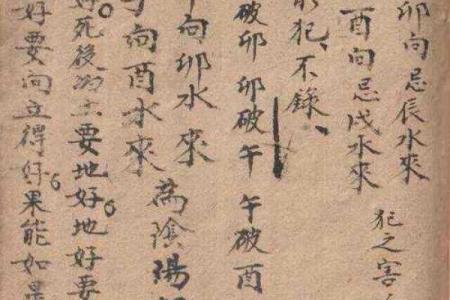 卯向忌辰水來
酉向忌戌水來
犯之害
犯、不錄、
破卯 卯破午 午破酉
向卯水來
向酉水來
為陰陽
死後 要地好地好要
好要向立得好。果能如果